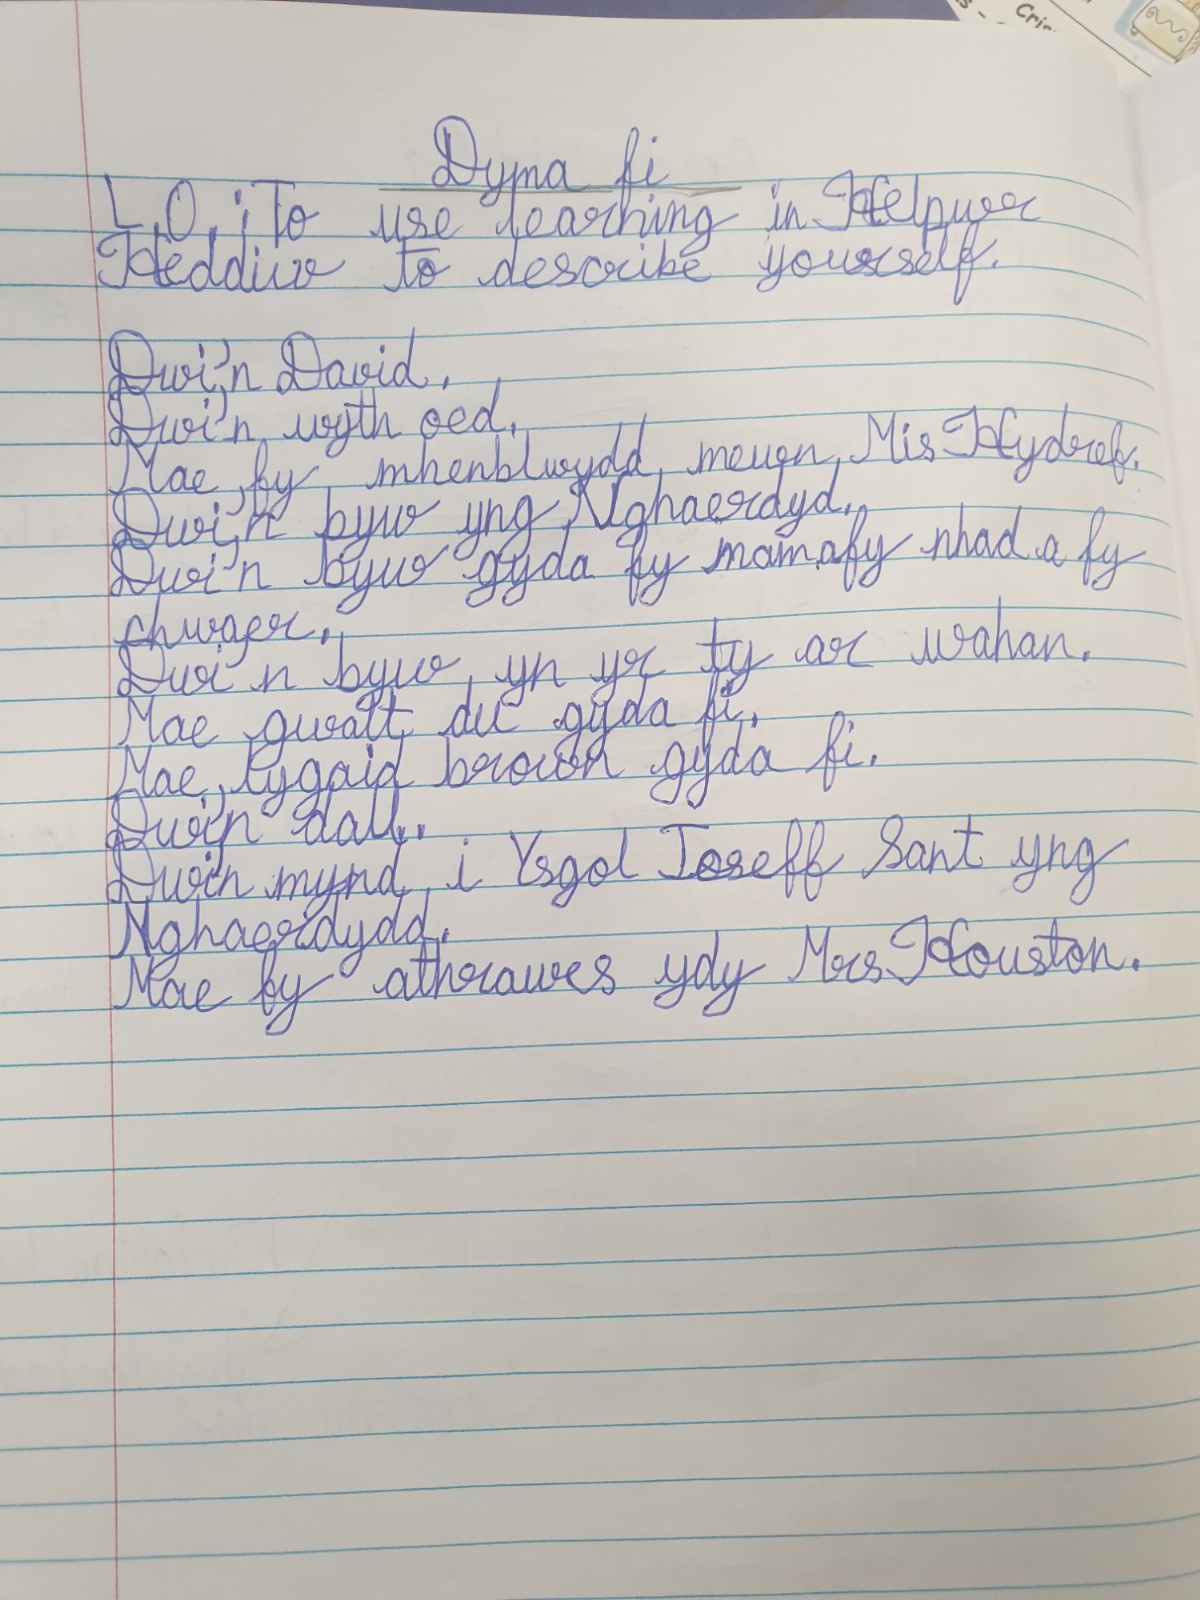 Dyma fi
L.O.: To use learning in Helpwr
Heddiw to describe yourself.
Dwi'n David.
Dwi'n wyth oed.
Mae fy mhenblwydd mewn Mis Hydref.
Dwi'n byw yng Nghaerdyd.
Dwi'n byw gyda fy mam a fy nhad a fy
chwaer.
Dwi'n byw yn yr ty ar wahan.
Mae gwallt du gyda fi.
Mae llygaid brown gyda fi.
Dwi'n dall.
Dwi'n mynd i Ysgol Ioseff Sant yng
Nghaerdydd.
Mae fy athrawes ydy Mrs Houston.